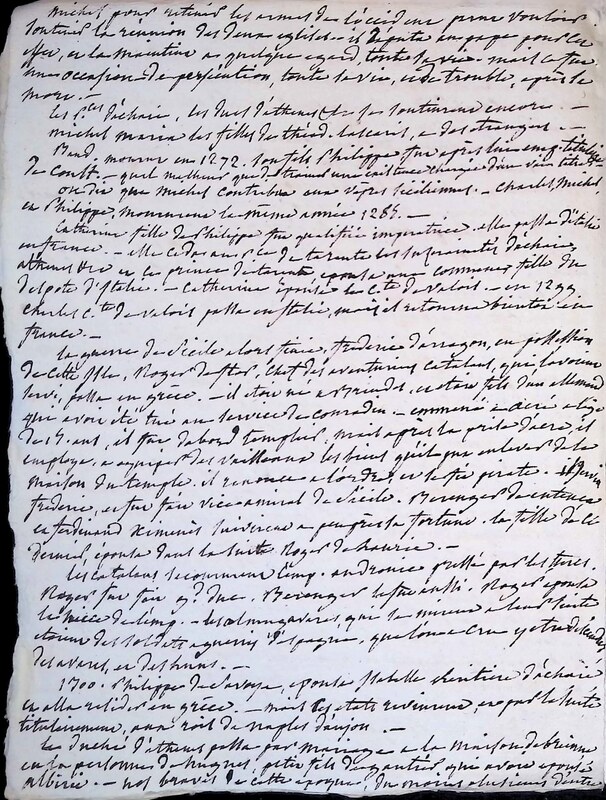 michel pour retenir les armes de l'occident parut vouloir
soutenir la reunion des deux eglises - il députe au pape pour cet
effet, et la maintient a quelque egard, toute sa vie - mais ce fut
une occasion de persécution, toute sa vie, et de trouble, après sa
mort. -
les pces d'achaie, les ducs d'athenes &c se soutinrent encore. -
michel maria les filles de théod. lascaris, a des etrangers. -
Baud. mourut en 1272. son fils Philippe fut après lui emp. titulaire
de Constt. - quel malheur que de trainer une existence chargée d'un vain titre -
on dit que michel contribua aux vepres siciliennes. - charles, michel
et Philippe, moururent la même année 1285. -
Catherine fille de Philippe fut qualifiée imperatrice. elle passa d'italie
en france. - elle céda aux pces de tarente les suzerainetés d'achaie,
athenes &c et le prince de tarente épousa une comnene, fille du
despote d'Etolie. - Catherine épousa le Cte de Valois. - en 1299
charles Cte de valois passa en italie, mais il retourna bientôt en
france. -
la guerre de sicile alors finie, frederic d'arragon, en possession
de cette isle, Roger de flor, chef des aventuriers catalans, qui l'avoient
servi, passa en grèce. - il etoit né a Brindes, et etoit fils d'un allemand
qui avoit été tué au service de conradin. - emmené a acre a l'age
de 15 ans, il fut d'abord templier, mais après la prise d'acre, il
employa, a equiper des vaisseaux les biens qu'il put enlever de la
maison du temple. il renonce a l'ordre, et se fit pirate. - il servit
frederic, et fut fait vice amiral de sicile. Berenger d'entença
et ferdinand Ximenès suivirent a peu près sa fortune. la fille de ce
dernier, épousa dans la suite Roger de Lauria. -
les catalans secoururent l'emp. andronic pressé par les turcs.
Roger fut fait gd duc. Berenger le fut aussi. Roger épousa
la niece de l'emp. - les almugavares, qui se mirent a leur suite
etoient des soldats aguerris d'espagne, que l'on a cru y etre descendus
des avares, et des huns. -
1300. Philippe de Savoye, épousa Isabelle héritiere d'achaie
et alla resider en grèce. - mais ces etats revinrent, et par la suite
titulairement, aux rois de naples d'anjou. -
le duché d'athenes passa par mariage a la maison de brienne
en la personne de hugues, petit fils de gautier, qui avoit épousé
albérie. - nos braves de cette époque, du moins plusieurs d'entre